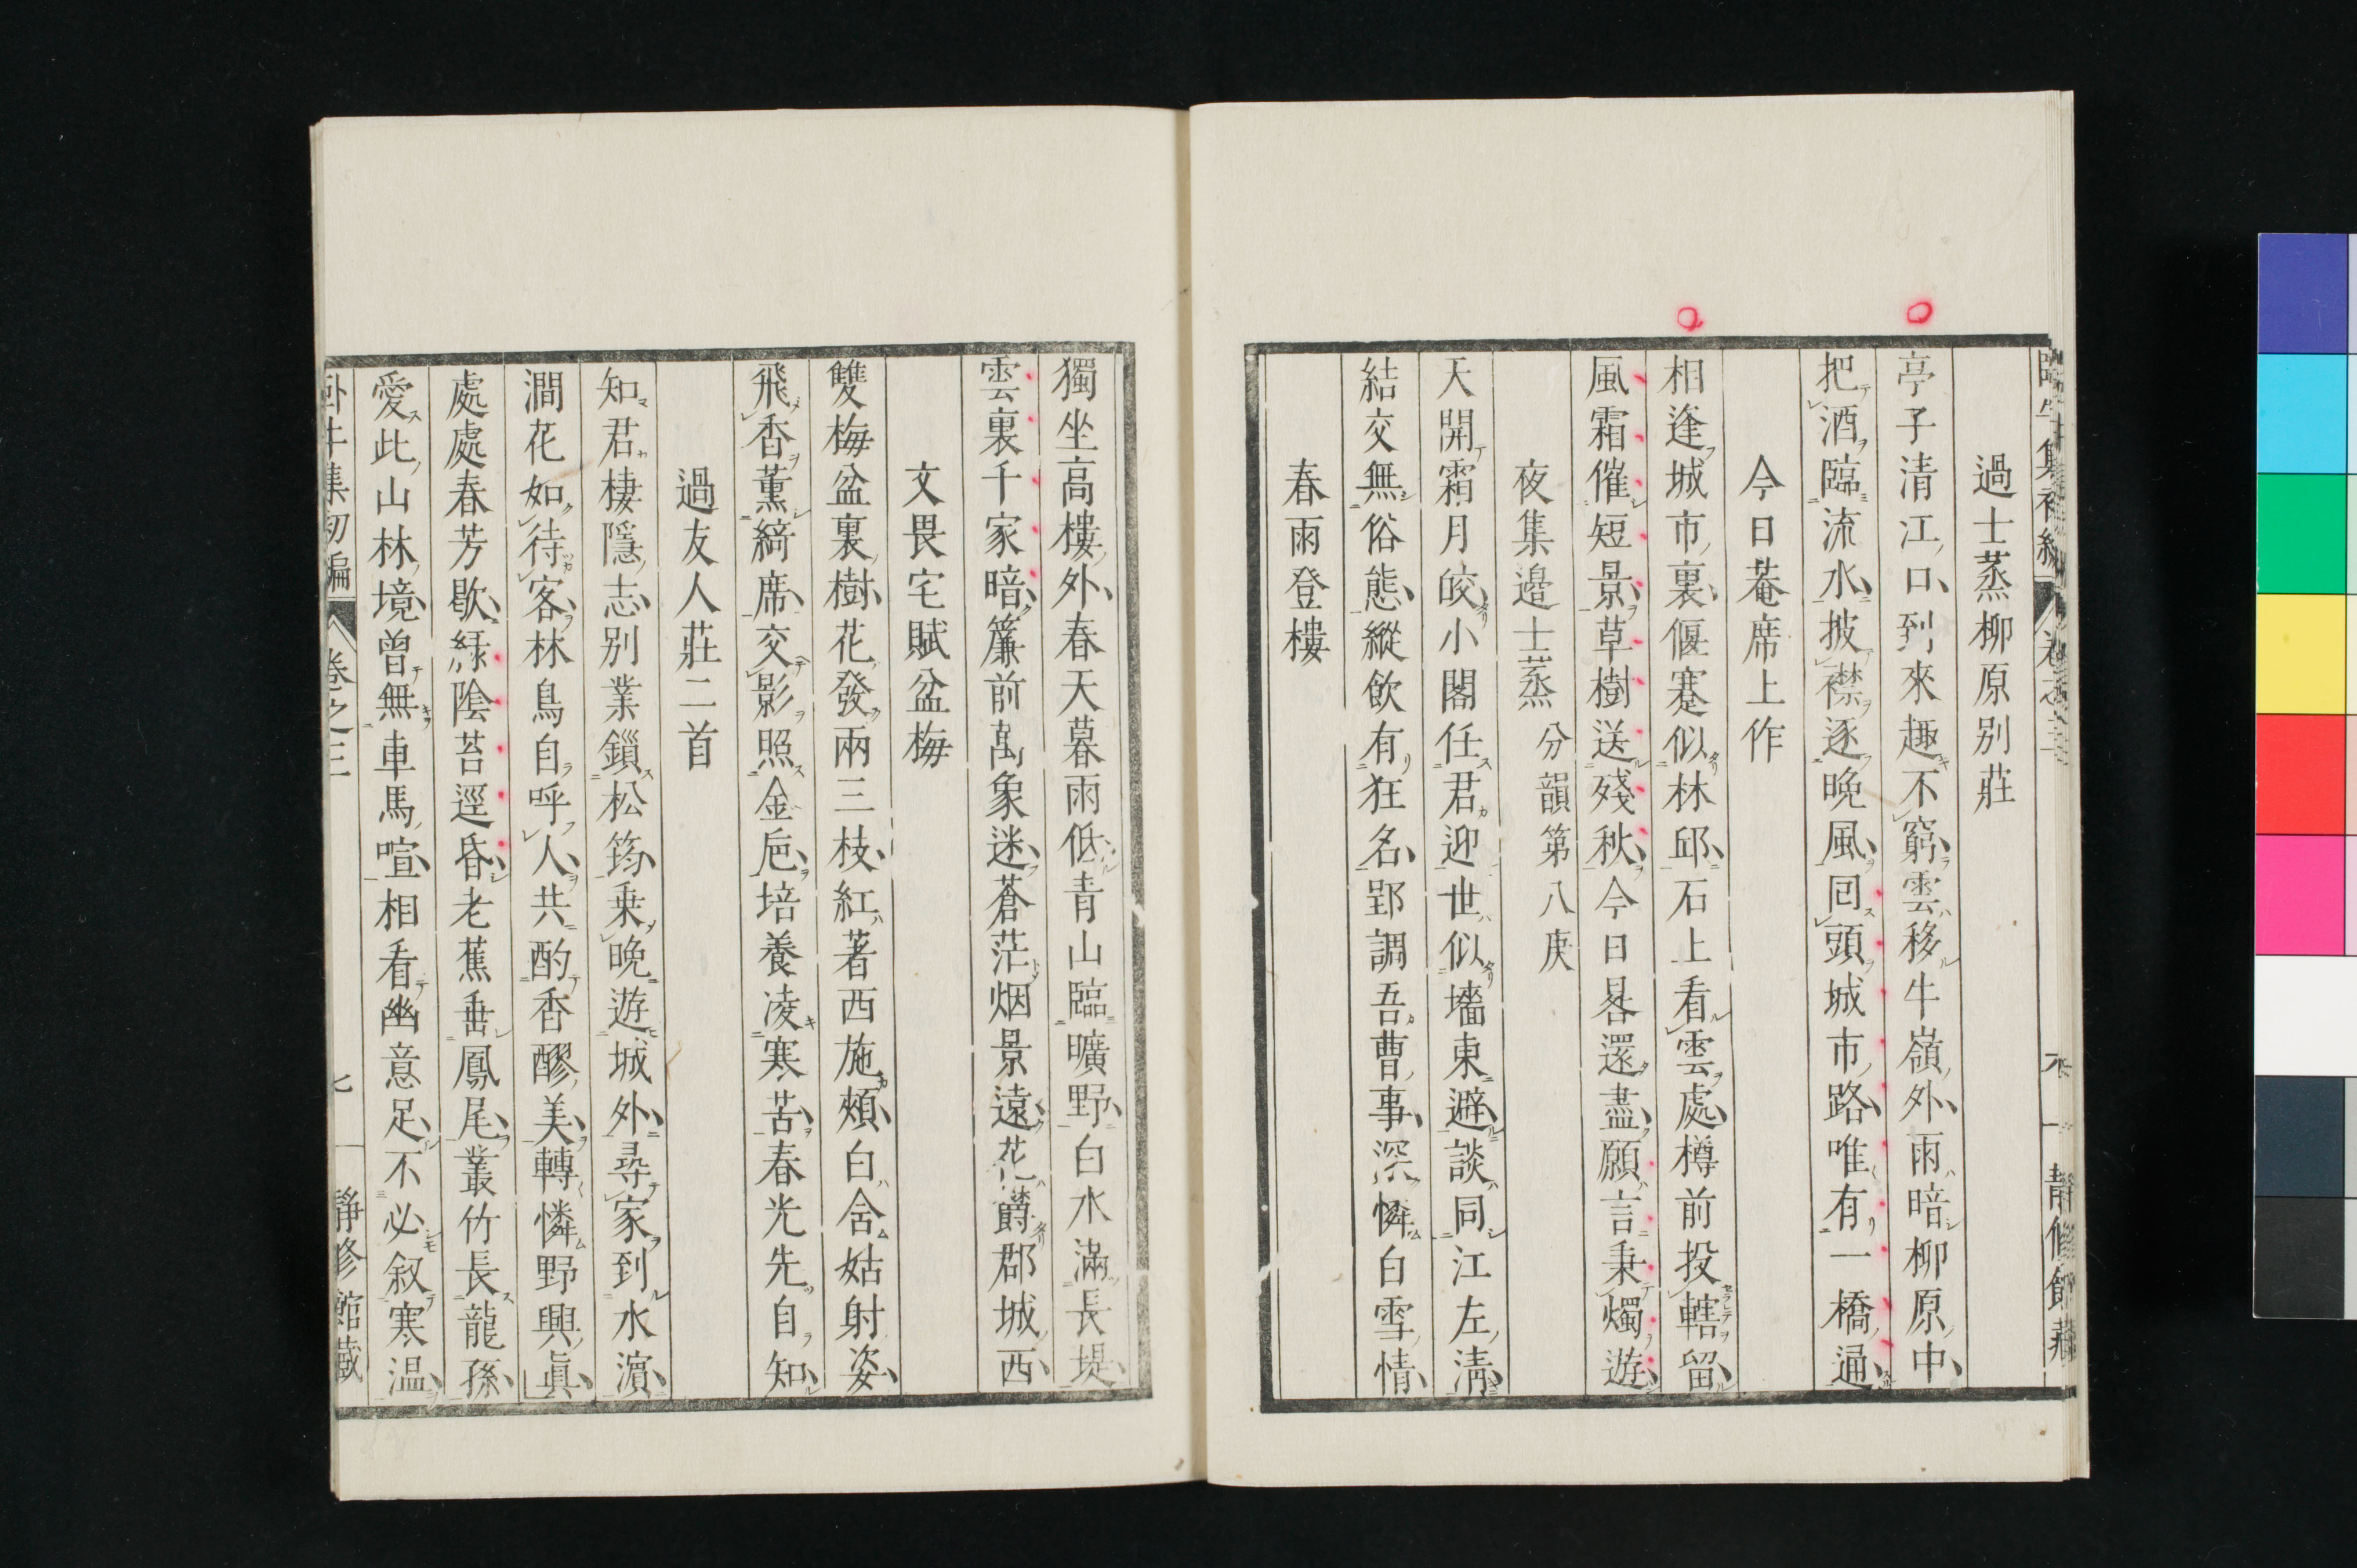 過士蒸柳原別莊
亭子清江口到來趣不窮雲移牛嶺外雨暗柳原中
把酒臨流水披襟逐晚風囘頭城市路唯有一橋通
今日菴席上作
相逢城市裏偃蹇似林邱石上看雲處樽前投轄留
風霜催短景草樹送殘秋今日畧還盡願言秉燭遊
夜集邉士蒸 分韻第八庚
天開霜月皎小閣任君迎世似墻東避談同江左淸
結交無俗態縱飲有狂名郢調吾曹事深憐白雪情
春雨登樓
獨坐高樓外春天暮雨低青山臨曠野白水滿長堤
雲裏千家暗簾前萬象迷蒼茫烟景遠花欝郡城西
文畏宅賦盆梅
雙梅盆裏樹花發兩三枝紅著西施頰白含姑射姿
飛香薫綺席交影照金巵培養凌寒苦春光先自知
過友人莊二首
知君棲隱志別業鎖松筠乗晚遊城外尋家到水濵
澗花如待客林鳥自呼人共酌香醪美轉憐野興眞
處處春芳歇緑陰苔逕昏老蕉垂鳳尾叢竹長龍孫
愛此山林境曾無車馬喧相看幽意足不必叙寒温
卧牛集初編 卷之三 七 靜修館藏